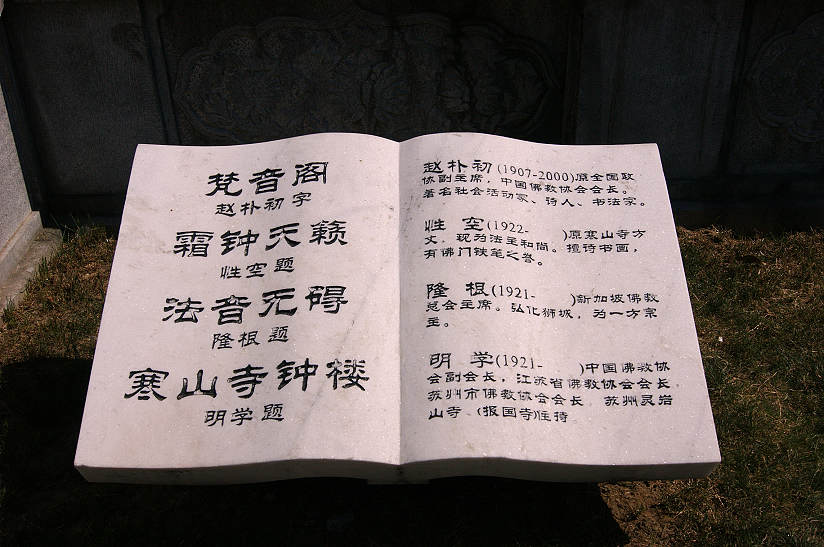 梵音阁
赵朴初 字
霜钟天籁
性空 题
法音无碍
隆根 题
寒山寺钟楼
明学 题
赵朴初(1907-2000)原全国政
协副主席，中国佛教协会会长。
著名社会活动家、诗人、书法家。
性 空(1922- )原寒山寺方
丈，现为法主和尚。擅诗书画，
有佛门铁笔之誉。
隆 根(1921- )新加坡佛教
总会主席。弘化狮城，为一方宗
主。
明 学(1921- )中国佛教协
会副会长，江苏省佛教协会会长，
苏州市佛教协会会长，苏州灵岩
山寺、(报国寺)住持